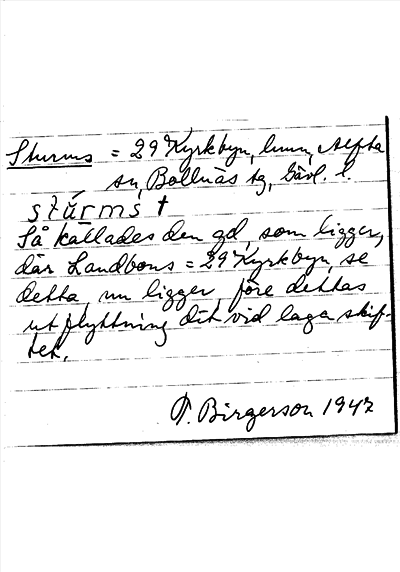 Sturms = 29 Kyrkbyn, hmn, Alfta
sn, Bollnäs tg, Gävl. l.
stu̇̄rms †
Så kallades den gd, som ligger,
där Landbons = 29 Kyrkbyn, se
detta, nu ligger, före dettas
utflyttning dit vid laga skif-
tet.
T. Birgerson 1947